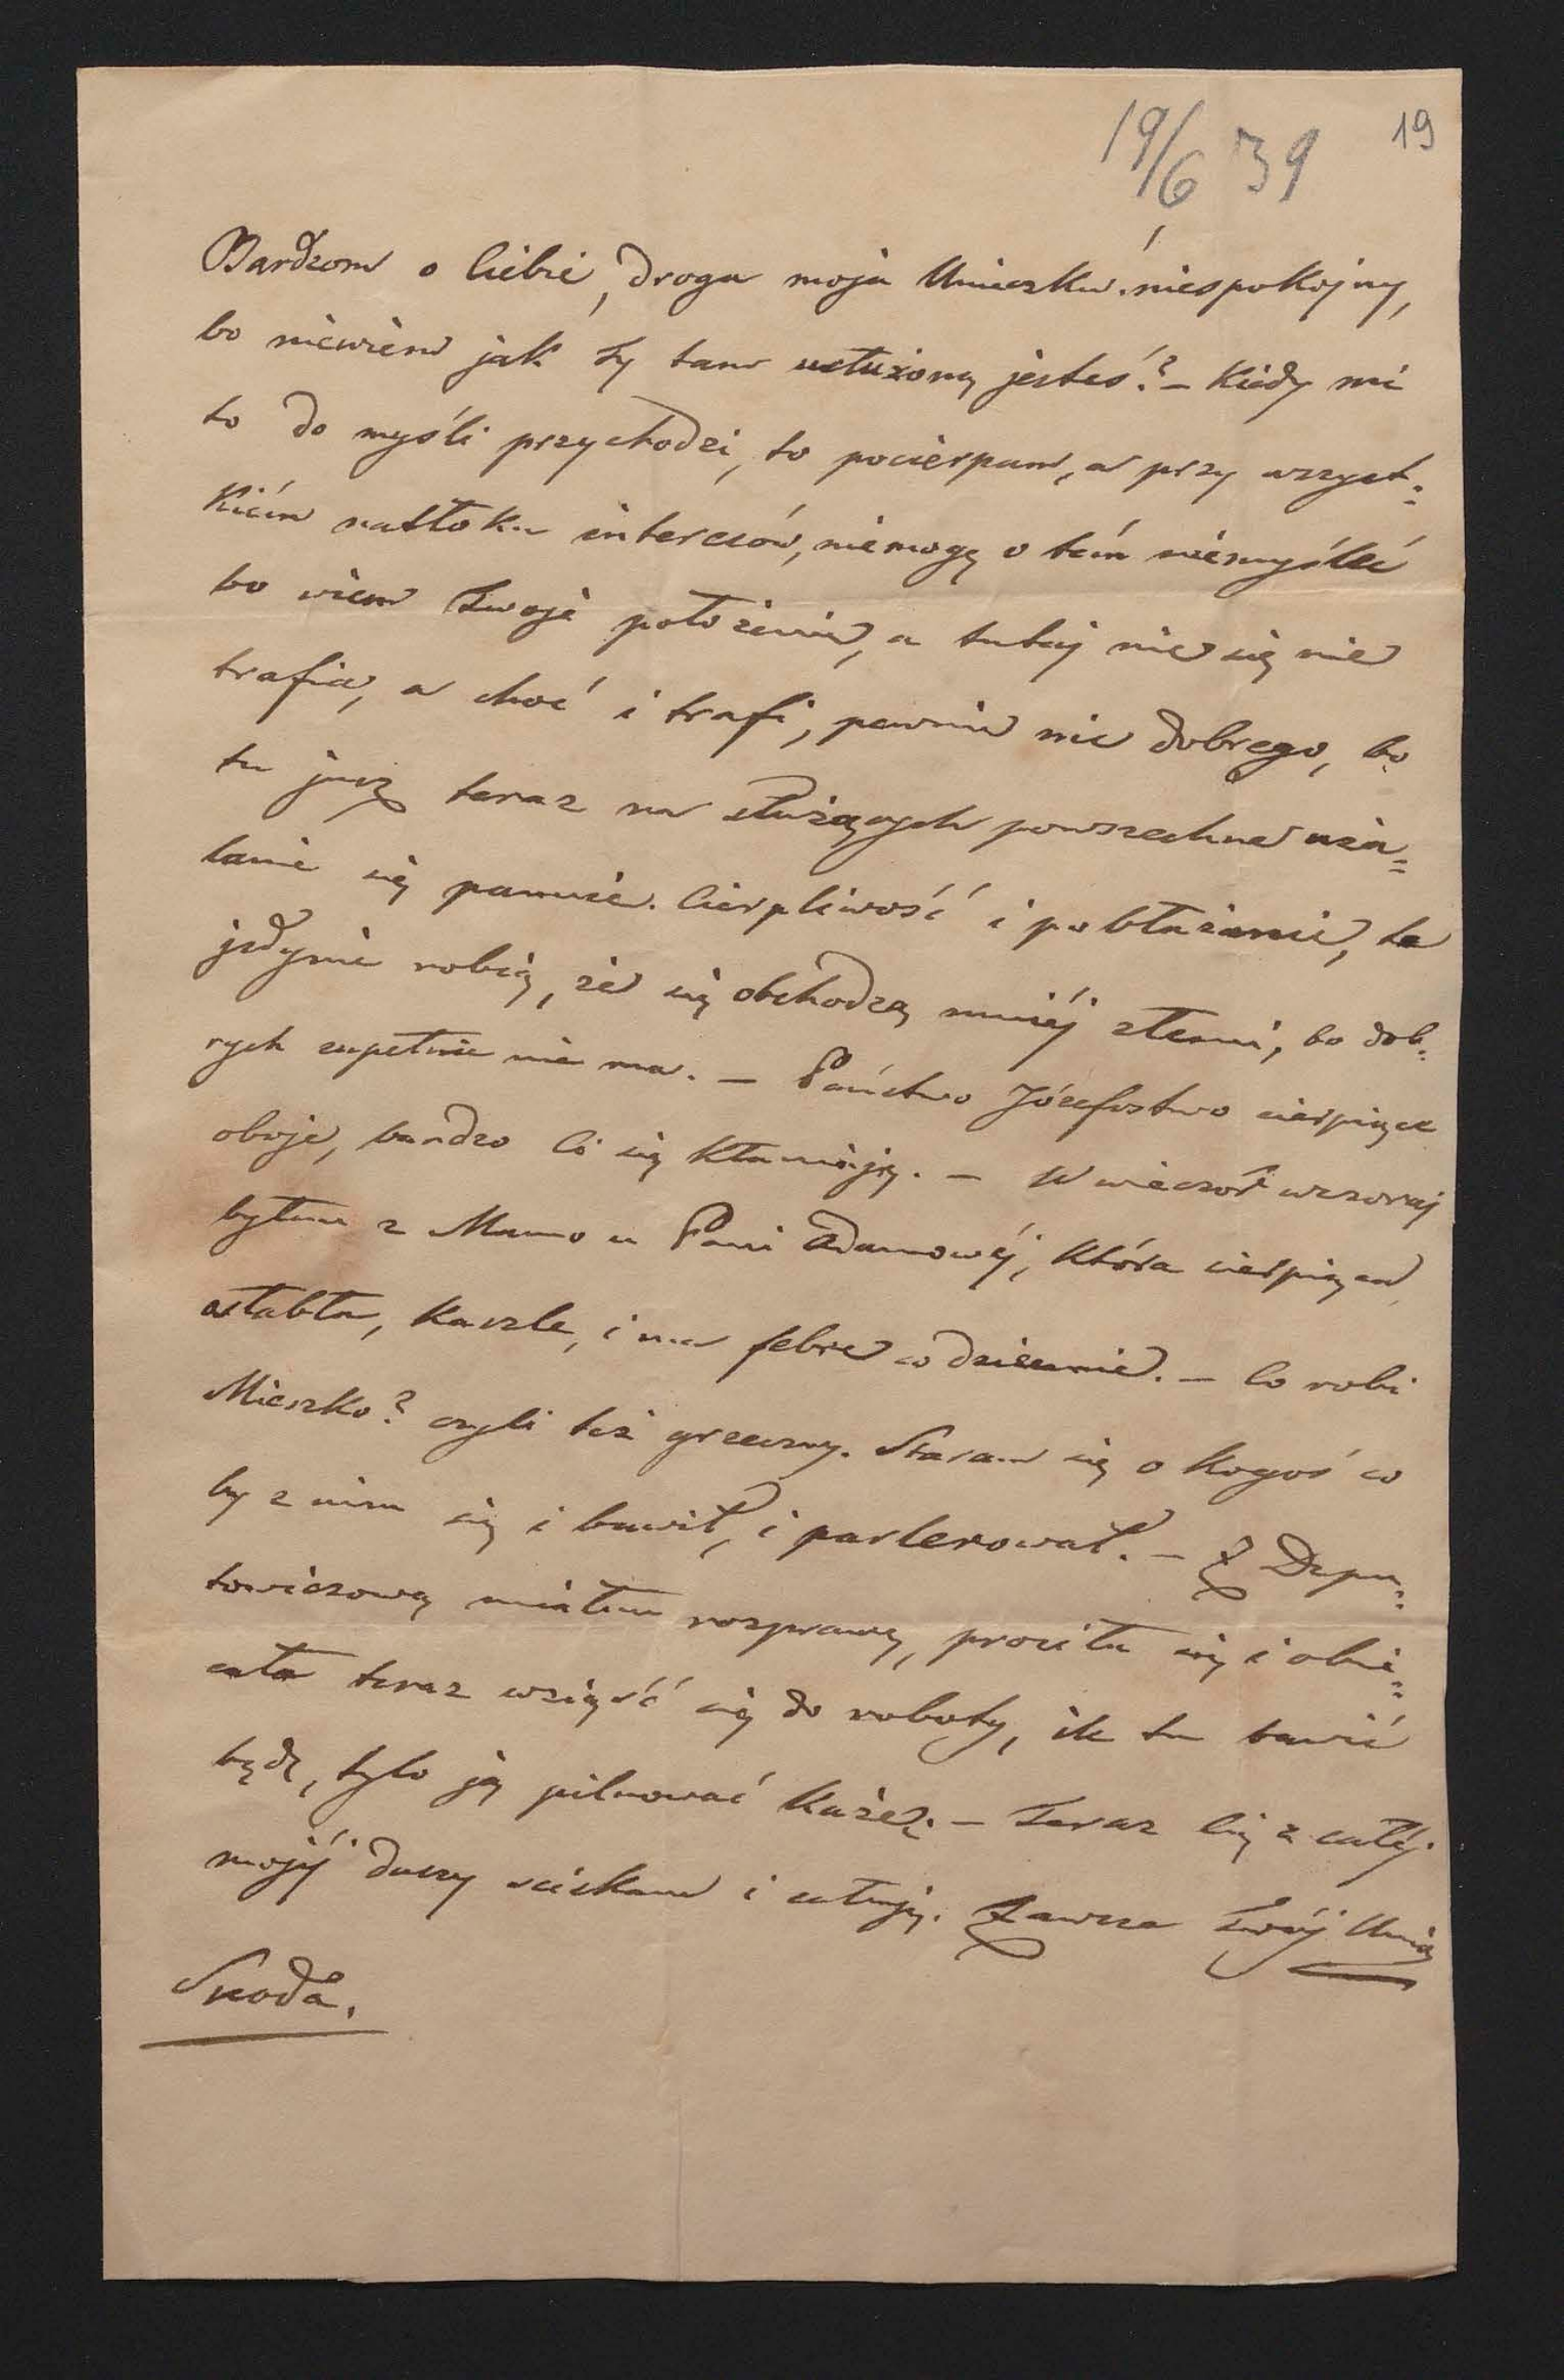 19/6 39
19
Bardzom o Ciebie, droga moja Unieczku niespokojny,
bo niewiem jak Ty tam usłużoną jesteś? – Kiedy mi
to do myśli przychodzi, to pocierpam, a przy wszyst=
kiém natłoku interesów, niemogę o tém niemyśleć
bo wiem Twoje położenie, a tutaj nic się nie
trafia, a choć i trafi, pewnie nic dobrego, bo
tu już teraz na służących powszechne uża=
lanie się panuie. Cierpliwość i pobłażanie, te
jedynie robią, że się obchodzą mniéj złemi, bo dob=
rych zupełnie nie ma. – Państwo Józefostwo cierpiące
oboje, bardzo Ci się kłaniają. – W wieczór wczoraj
byłem z Mamo u Pani Adamowéj, która cierpiąca
osłabła, kaszle, i ma febre codziennie. – Co robi
Mieszko? czyli też grzeczny. Staram się o kogoś co
by z nim się i bawił, i parlerował. – Z Depu=
towiczową miałem rozprawę, prosiła się i obie=
cała teraz wziąść się do roboty, ile tu bawić
będę, tylo ją pilnować każę. – Teraz Cię z całéj
mojéj duszy sciskam i całuję. Zawsze Twój Unio
Sroda.